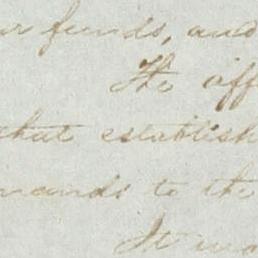 r funds, and
The off
that establish
mands to the
It wo